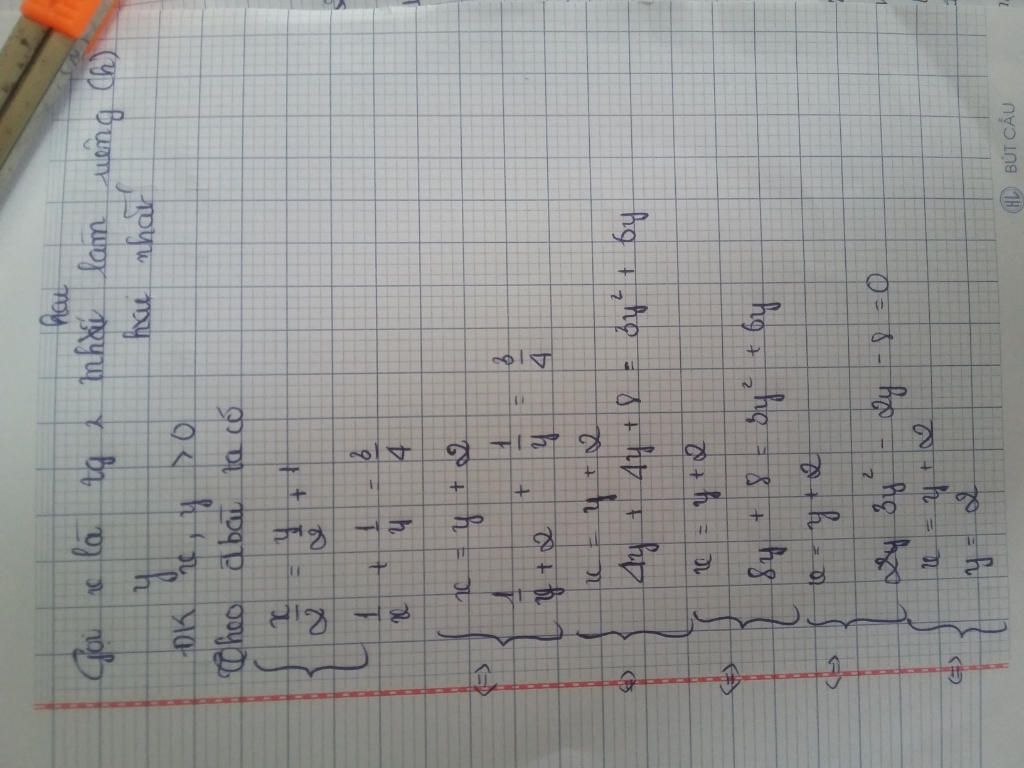 hai
Gọi x là tg 2 làm riêng (h)
y hai nhất
ĐK x, y > 0
Theo đbài ra có
x/2 = y/2 + 1
1/x + 1/y - 3/4
<=> x = y + 2
1/y + 2 + 1/y = 3/4
<=> x = y + 2
4y + 4y + 8 = 3y² + 6y
<=> x = y + 2
8y + 8 = 3y² + 6y
<=> x = y + 2
3y² - 2y - 8 = 0
<=> x = y + 2
y = 2
HL BÚT CÂU